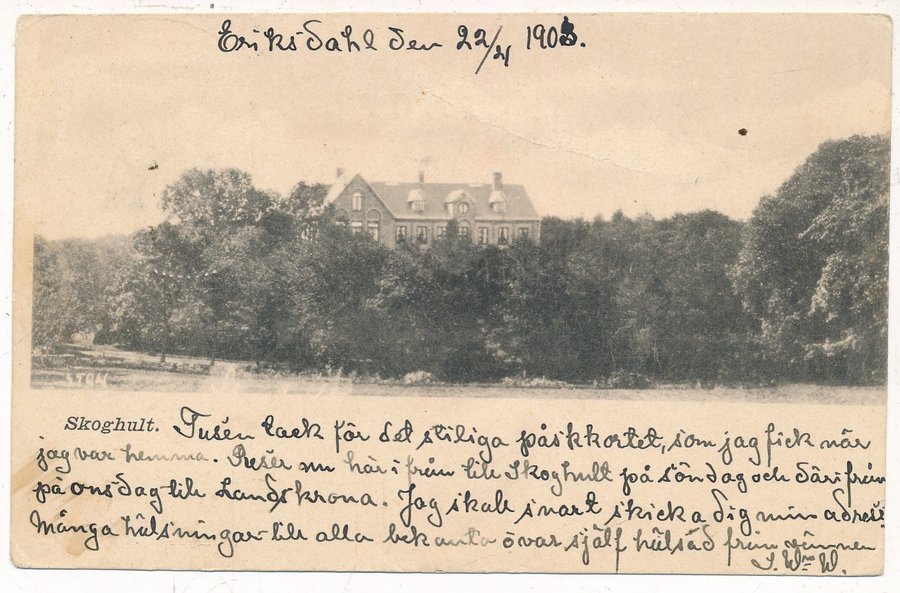 Eriksdahl den 22/4 1903.
Skoghult. Tusen tack för det stiliga påskkortet, som jag fick när
jag var hemma. Reser nu här i från till Skoghult på söndag och därifrån
på onsdag till Landskrona. Jag skall snart skicka dig min adress
Många hälsningar till alla bekanta o var själf hälsad från vännen